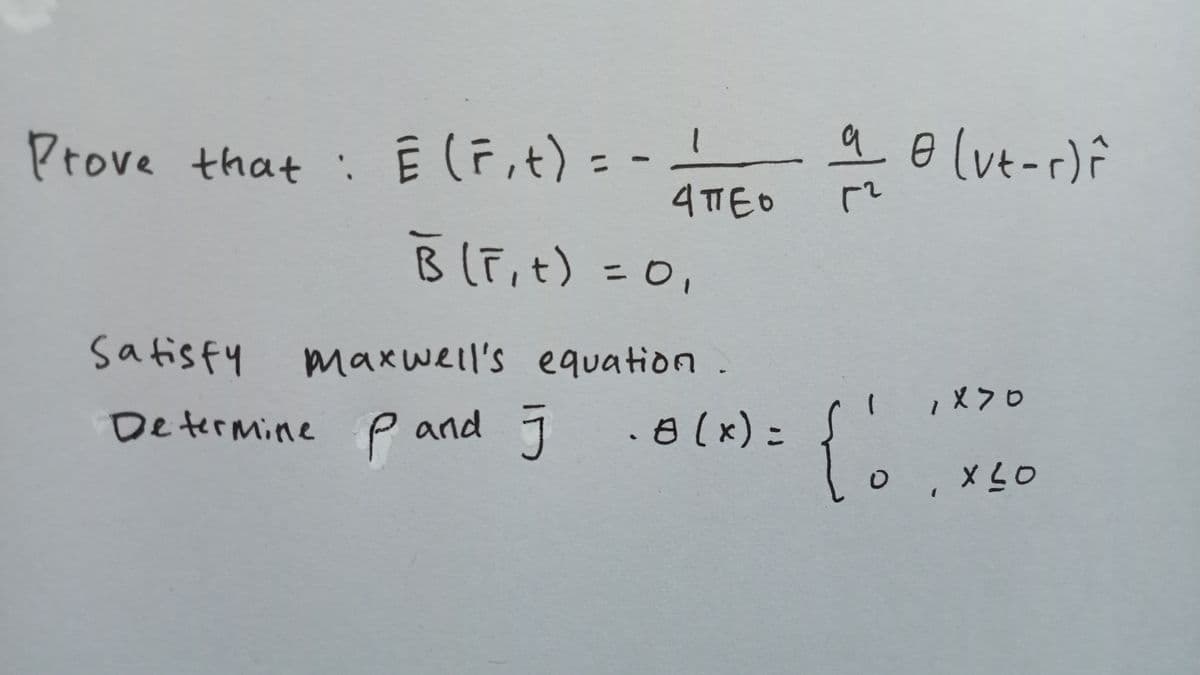 Prove that : Ē (r̄,t) = - 1/(4πε0) q/r² θ (vt-r) r̂
B̄ (r̄,t) = 0,
Satisfy maxwell's equation.
Determine ρ and J̄ . θ (x) = { 1 , x>0
0 , x≤0